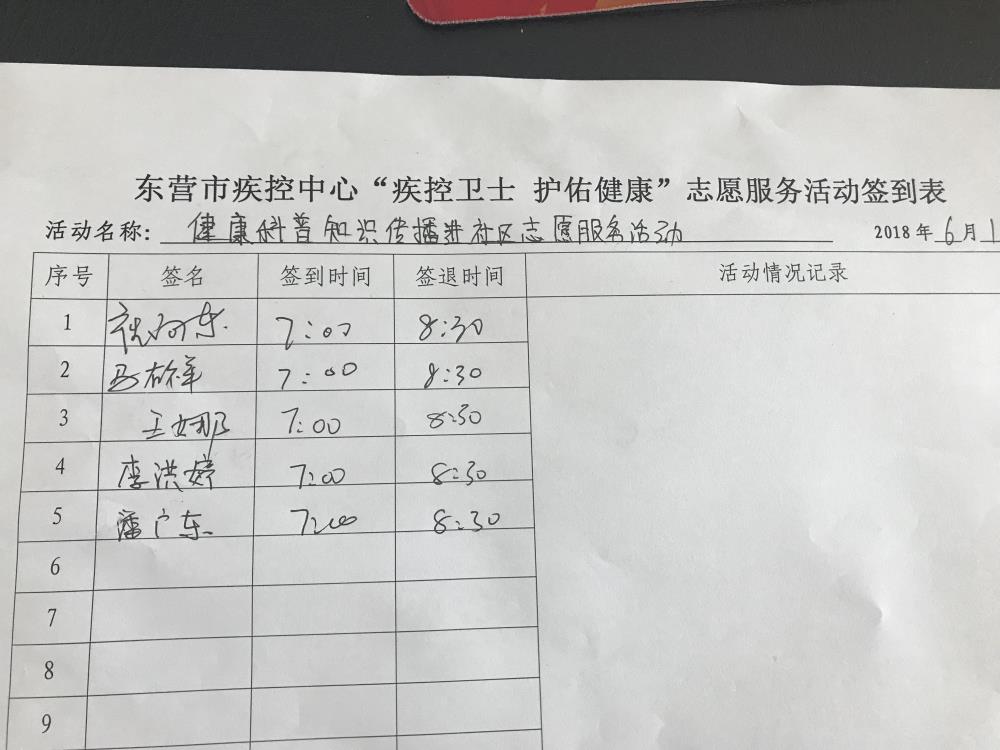 东营市疾控中心“疾控卫士 护佑健康”志愿服务活动签到表
活动名称：健康科普知识传播进社区志愿服务活动 2018年6月1
序号 签名 签到时间 签退时间 活动情况记录
1 7:00 8:30
2 马 7:00 8:30
3 王娜 7:00 8:30
4 李洪婷 7:00 8:30
5 潘广东 7:00 8:30
6
7
8
9